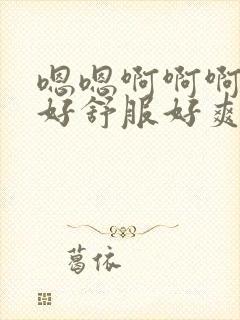 嗯嗯啊啊啊
好舒服好爽
葛依